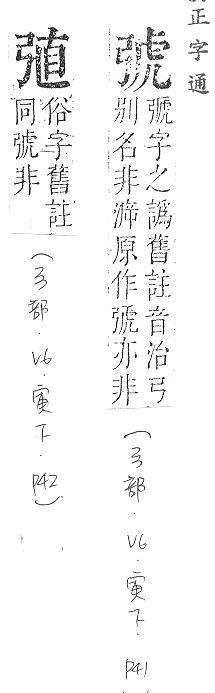 正字通
字之譌舊註音治弓
別名非原作亦非
(弓部．V6．寅下．P41
俗字舊註
同號非
(弓部．V6．寅下．P42)